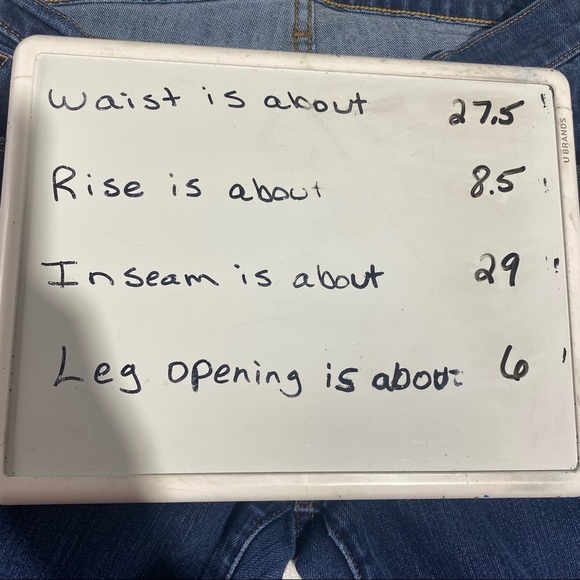 Waist is about 27.5"
Rise is about 8.5"
Inseam is about 29"
Leg opening is about 6"
U BRANDS